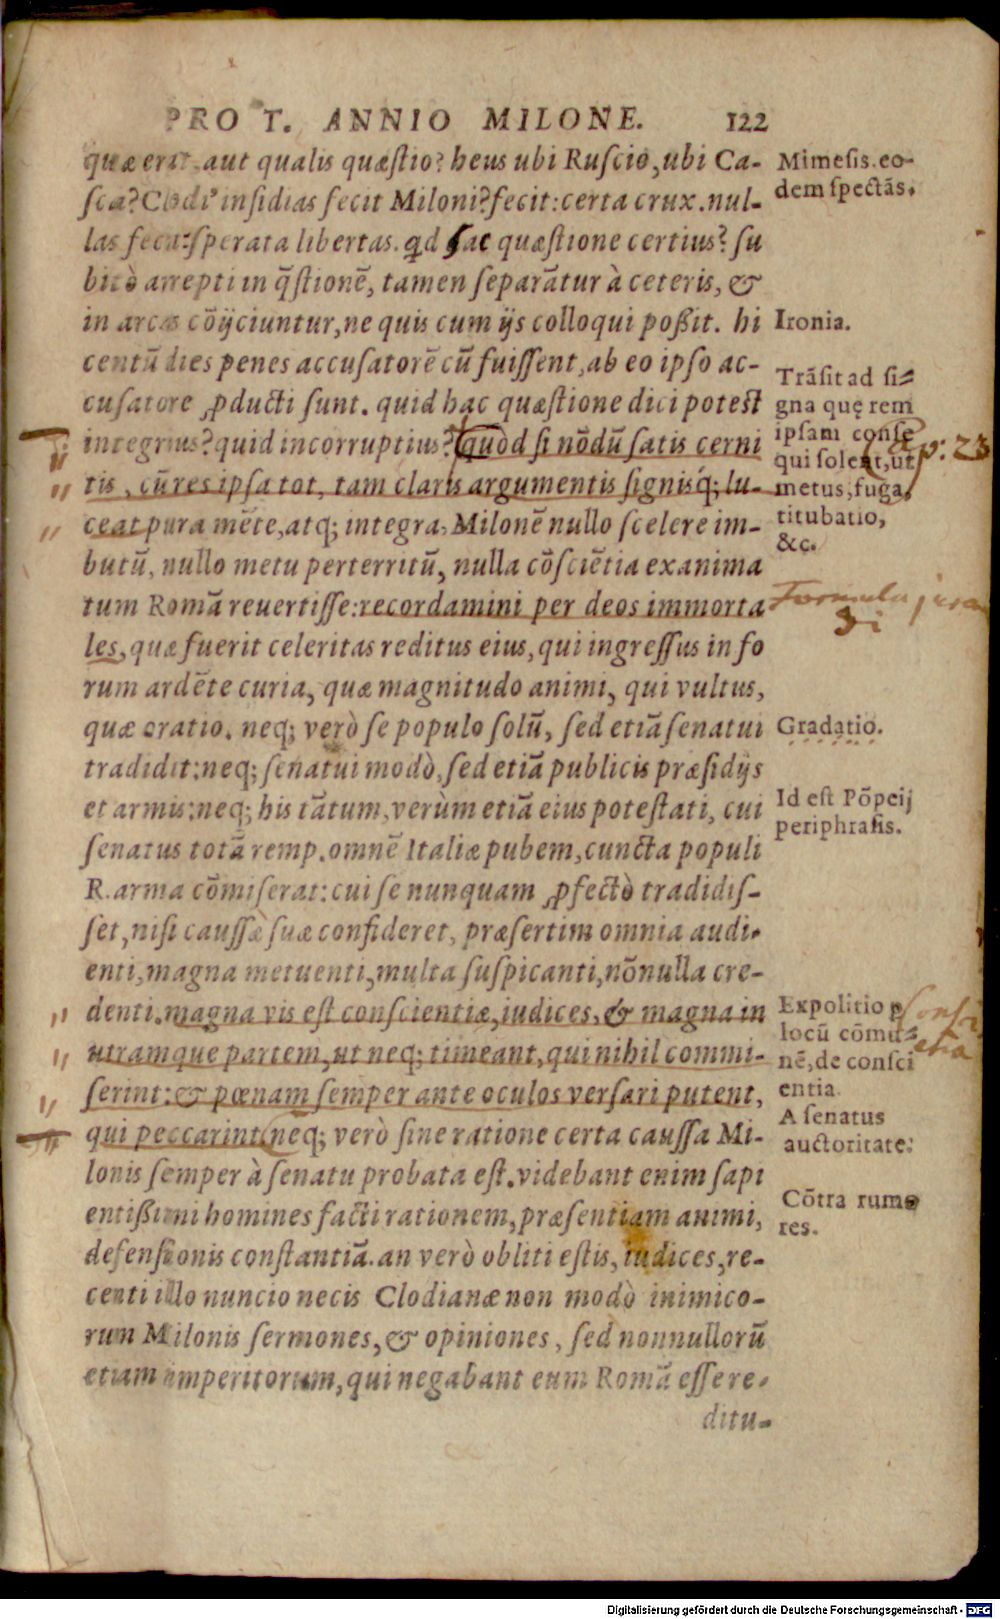 PRO T. ANNIO MILONE. 122
quæ erat aut qualis quæſtio? heus ubi Ruſcio, ubi Ca-
ſca? Clodiꝰ inſidias fecit Miloni? fecit: certa crux. nul-
las fecit: ſperata libertas. qd hac quæſtione certius? ſu
bitò arrepti in q̃ſtionẽ, tamen ſeparãtur à ceteris, &
in arcas cõijciuntur, ne quis cum ijs colloqui poßit. hi
centũ dies penes accuſatorẽ cũ fuiſſent, ab eo ipſo ac-
cuſatore ꝓducti ſunt. quid hac quæſtione dici poteſt
integrius? quid incorruptius? quòd ſi nõdũ ſatis cerni
tis, cũ res ipſa tot, tam claris argumentis ſignisq́; lu-
ceat pura mẽte, atq; integra, Milonẽ nullo ſcelere im-
butũ, nullo metu perterritũ, nulla cõſciẽtia exanima
tum Romã reuertiſſe: recordamini per deos immorta
les, quæ fuerit celeritas reditus eius, qui ingreſſus in fo
rum ardẽte curia, quæ magnitudo animi, qui vultus,
quæ oratio. neq; verò ſe populo ſolũ, ſed etiã ſenatui
tradidit: neq; ſenatui modò, ſed etiã publicis præſidijs
et armis: neq; his tãtum, verùm etiã eius poteſtati, cui
ſenatus totã remp. omnẽ Italiæ pubem, cuncta populi
R. arma cõmiſerat: cui ſe nunquam ꝓfectò tradidiſ-
ſet, niſi cauſſæ ſuæ confideret, præſertim omnia audi-
enti, magna metuenti, multa ſuſpicanti, nõnulla cre-
denti. magna vis eſt conſcientiæ, iudices, & magna in
utramque partem, ut neq; timeant, qui nihil commi-
ſerint: & pœnam ſemper ante oculos verſari putent,
qui peccarint. neq; verò ſine ratione certa cauſſa Mi-
lonis ſemper à ſenatu probata eſt. videbant enim ſapi
entißimi homines facti rationem, præſentiam animi,
defenſionis conſtantiã. an verò obliti eſtis, iudices, re-
centi illo nuncio necis Clodianæ non modò inimico-
rum Milonis ſermones, & opiniones, ſed nonnullorũ
etiam imperitorum, qui negabant eum Romã eſſe re-
ditu-
Mimeſis. eo-
dem ſpectãs.
Ironia.
Trãſit ad ſi-
gna quę rem
ipſam conſe
qui ſolent, ut
metus, fuga,
titubatio,
&c.
Cap: 23
Formula
Gradatio.
Id eſt Põpeij
periphraſis.
Expolitio p
locũ cõmu-
nẽ, de conſci
entia.
A ſenatus
auctoritate.
Cõtra rumo
res.
Digitalisierung gefördert durch die Deutsche Forschungsgemeinschaft - DFG